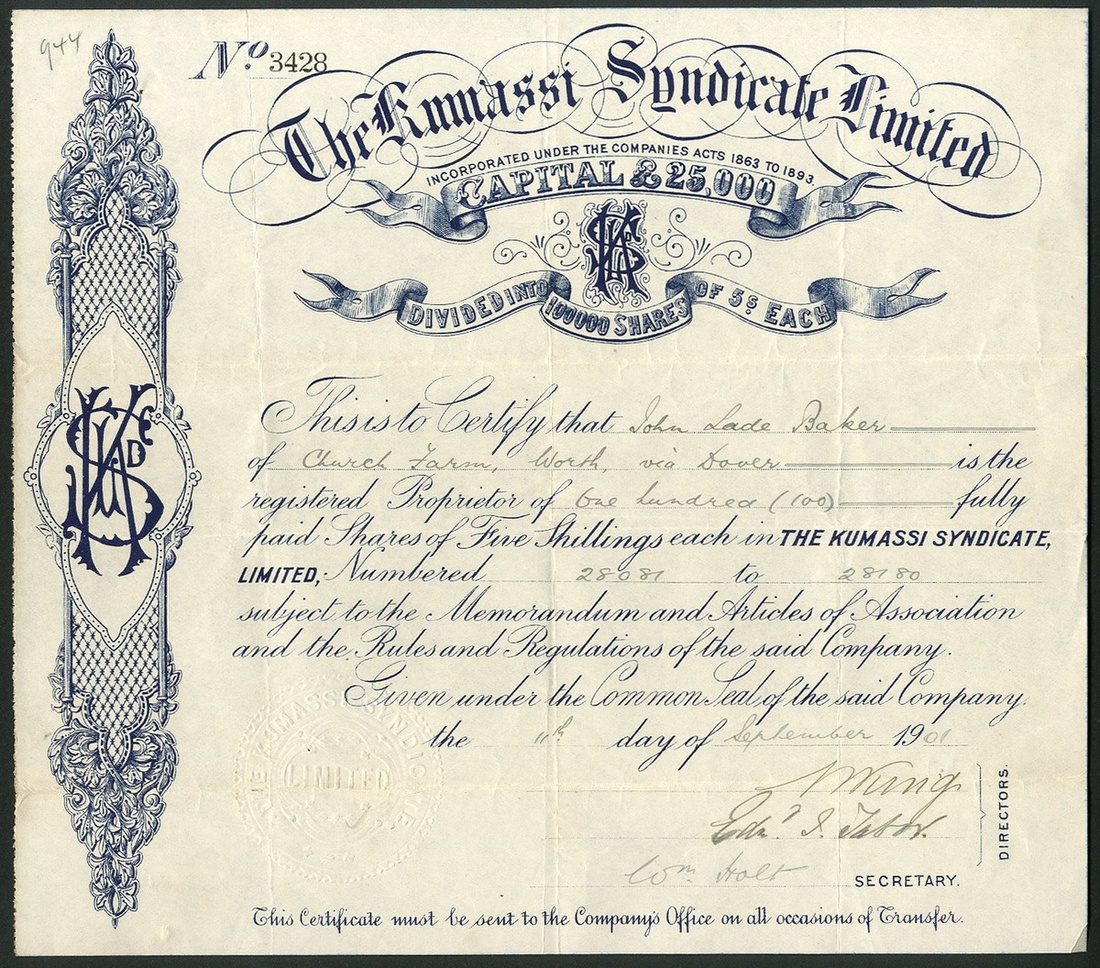 944
No. 3428
The Kumassi Syndicate Limited
INCORPORATED UNDER THE COMPANIES ACTS 1863 TO 1893.
CAPITAL £25,000
DIVIDED INTO 100000 SHARES OF 5S EACH
This is to Certify that John Lade Baker
of Church Farm, Worth, via Dover is the
registered Proprietor of One hundred (100) fully
paid Shares of Five Shillings each in THE KUMASSI SYNDICATE,
LIMITED, Numbered 28081 to 28180
subject to the Memorandum and Articles of Association
and the Rules and Regulations of the said Company.
Given under the Common Seal of the said Company.
the 11th day of September 1901
THE KUMASSI SYNDICATE
LIMITED
King
Edwd. I. Tabor.
DIRECTORS.
Wm Holt SECRETARY.
This Certificate must be sent to the Company's Office on all occasions of Transfer.